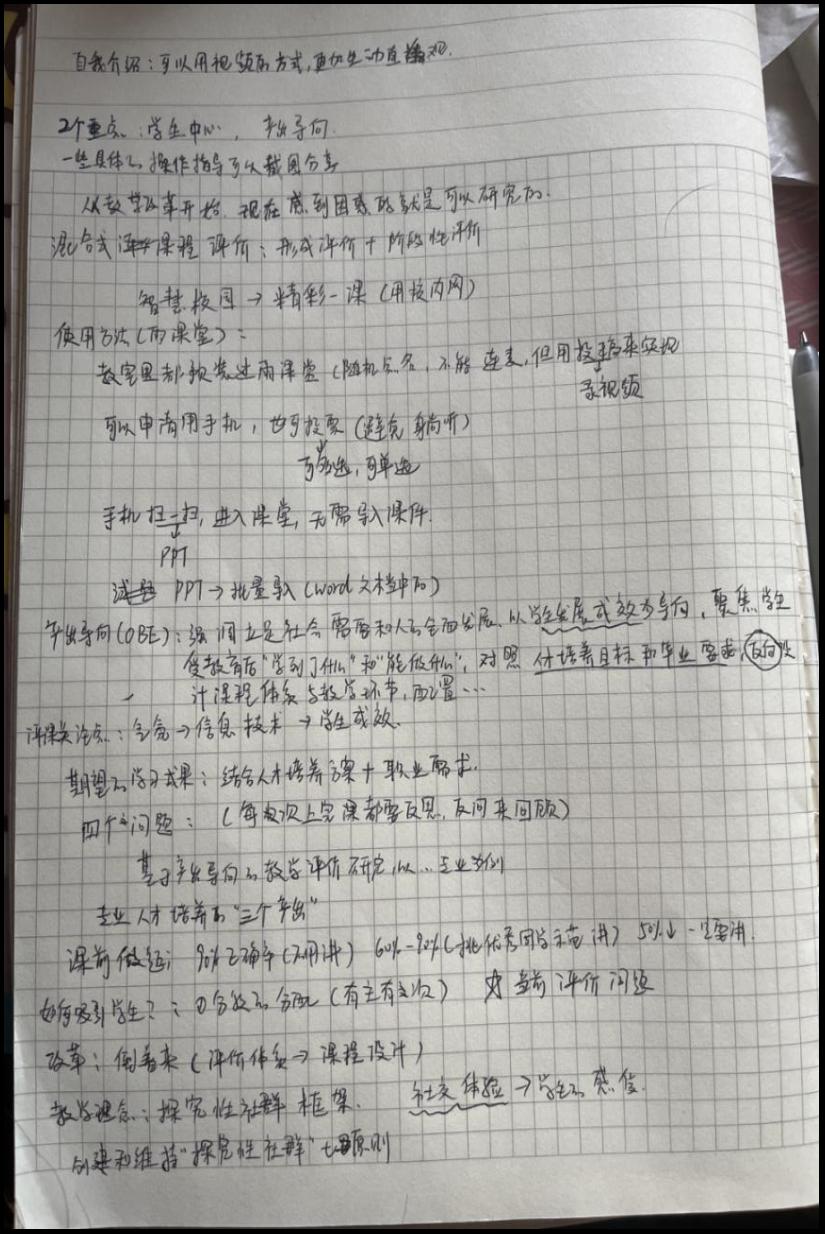 自我介绍：可以用视频的方式，更加生动直观.
2个重点：学生中心，产出导向.
一些具体的操作指导可以截图分享
从教学改革开始，现在感到困惑的就是可以研究的.
混合式课程评价：形成评价+阶段性评价
智慧校园→精彩一课(用校内网)
使用方法(雨课堂)：
教室里都预装过雨课堂(随机点名，不能连麦，但用投稿来实现
录视频
可以申请用手机，也可投票(避免躺听)
可多选，可单选
手机扫一扫，进入课堂，无需导入课件.
PPT
PPT→批量导入(word文档中的)
产出导向(OBE)：强调立足社会需要和人的全面发展、以学生发展成效为导向，聚焦学生
受教育后"学到了什么"和"能做什么"，对照人才培养目标和毕业要求，反向设
计课程体系与教学环节，配置…
评课关注点：→信息技术→学生成效.
期望的学习成果：结合人才培养方案+职业需求.
四个问题：(每次上完课都要反思，反问来回顾)
基于产出导向的教学评价研究，以…专业为例
专业人才培养的"三个产出"
课前做题；90%正确率(不用讲) 60%-90%(挑优秀同学示范讲) 50%↓一定要讲.
如何吸引学生？：①分数的分配(有主有次) 当前评价问题
改革：倒着来(评价体系→课程设计)
教学理念：探究性社群框架. 社交体验→学生的感受.
创建和维持"探究性社群"七原则